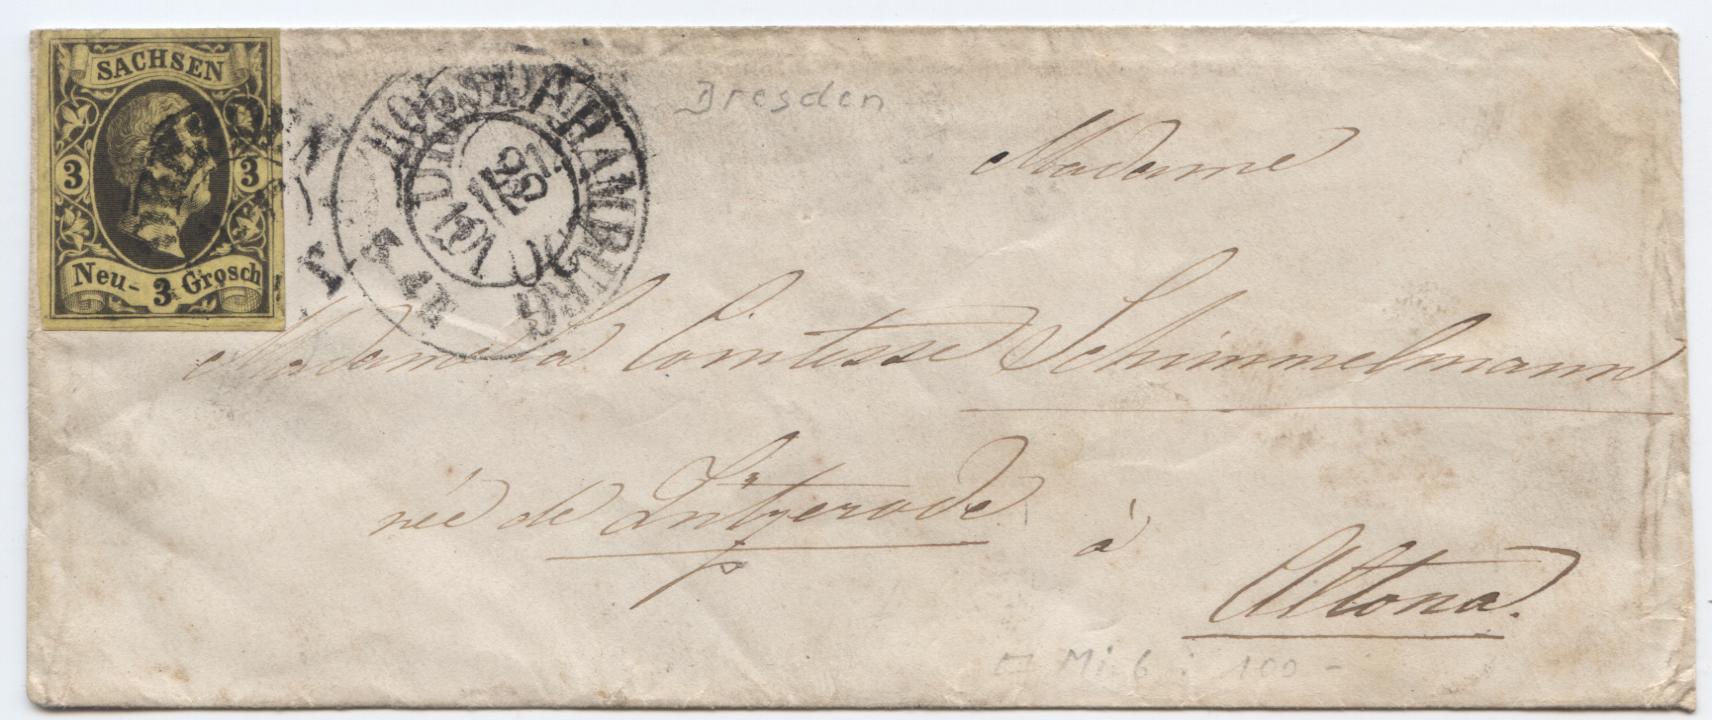 SACHSEN
3 3
Neu- 3 Grosch
HAMBURG
Dresden
Madame
Madame la Comtesse Schimmelmann
née de Lützerode
à
Altona.
Mi. 6 : 100 -